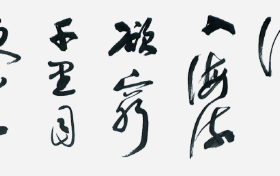 入海流
欲窮
千里目